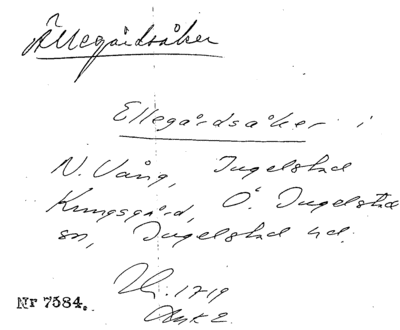 Ällegårdsåker
Ellegårdsåker i
N. Vång, Ingelstad
Kungsgård, Ö. Ingelstad
sn, Ingelstad hd.
1719
Nr 7584.